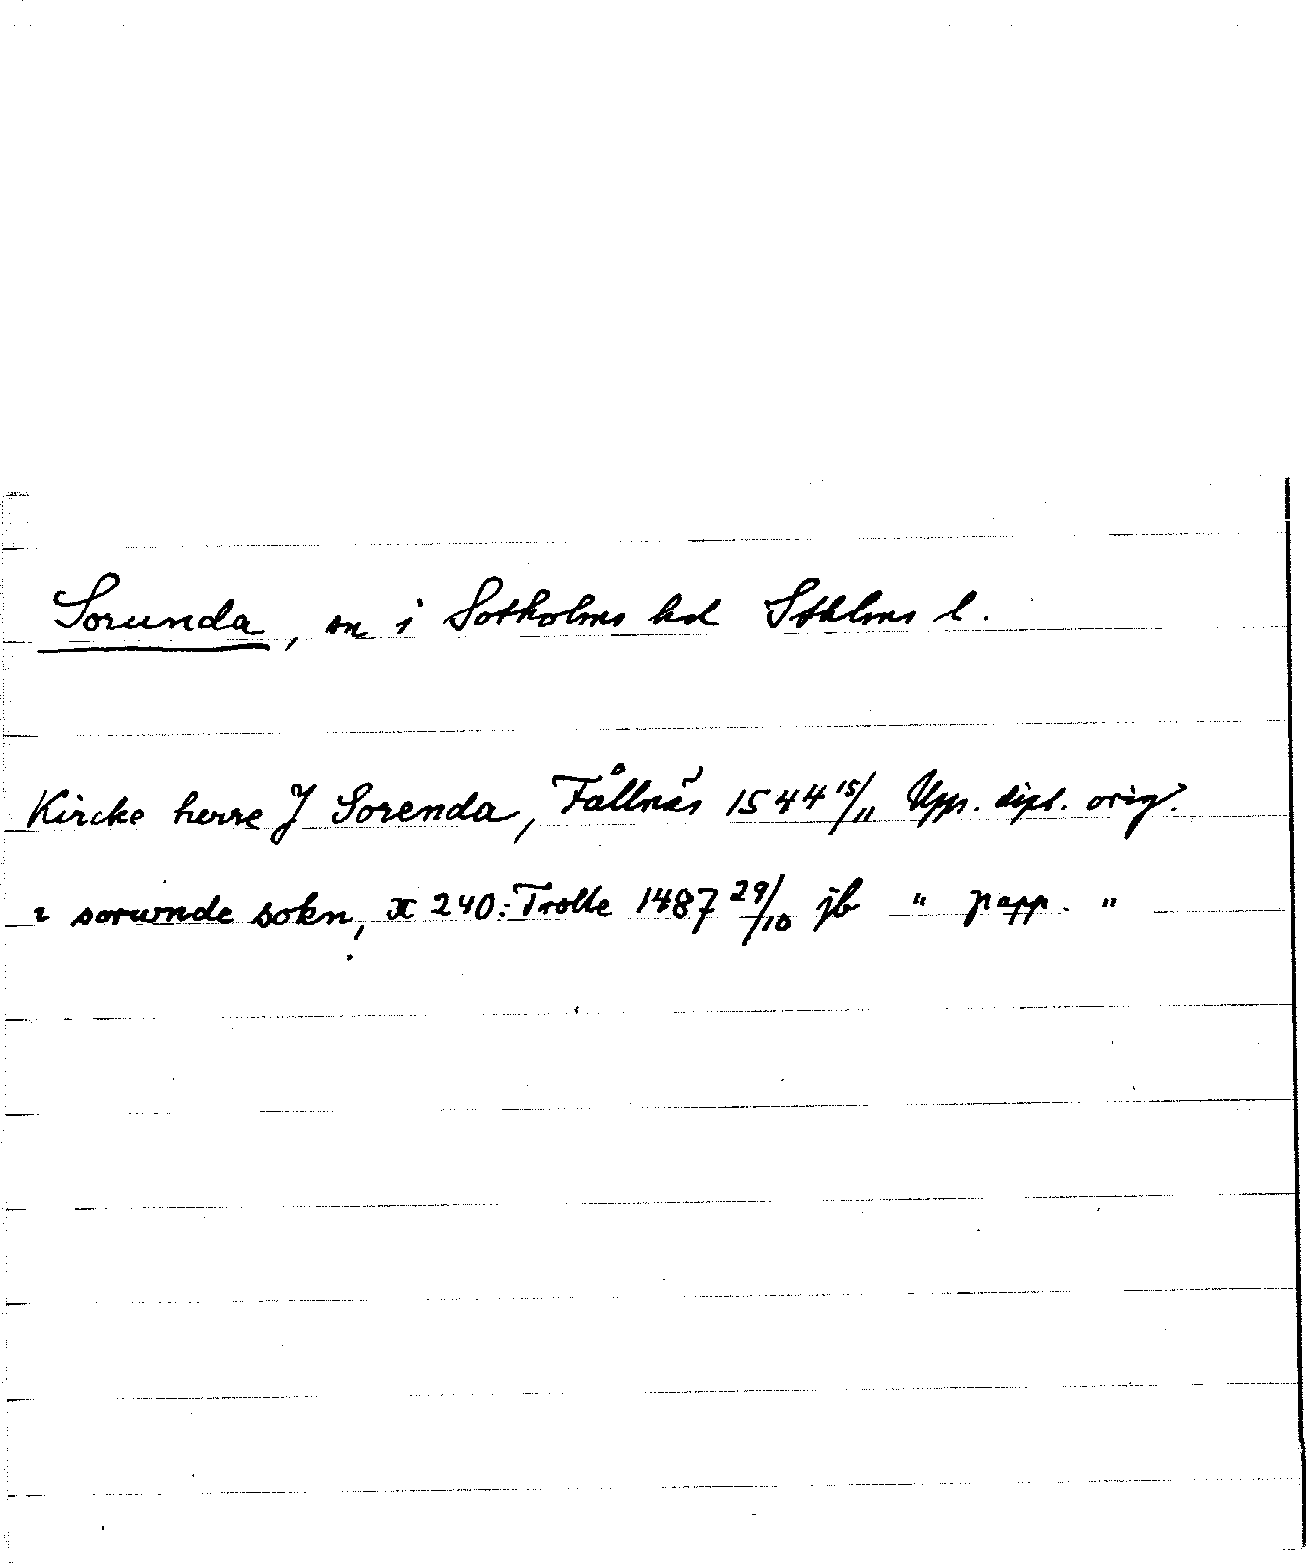 Sorunda, sn i Sotholms hd Sthlms l.
Kircke herre J Sorenda, Fållnäs 1544 15/11 Upps. dipl. orig.
i sorunde sokn, x 240: Trolle 1487 29/10 jb " papp. "